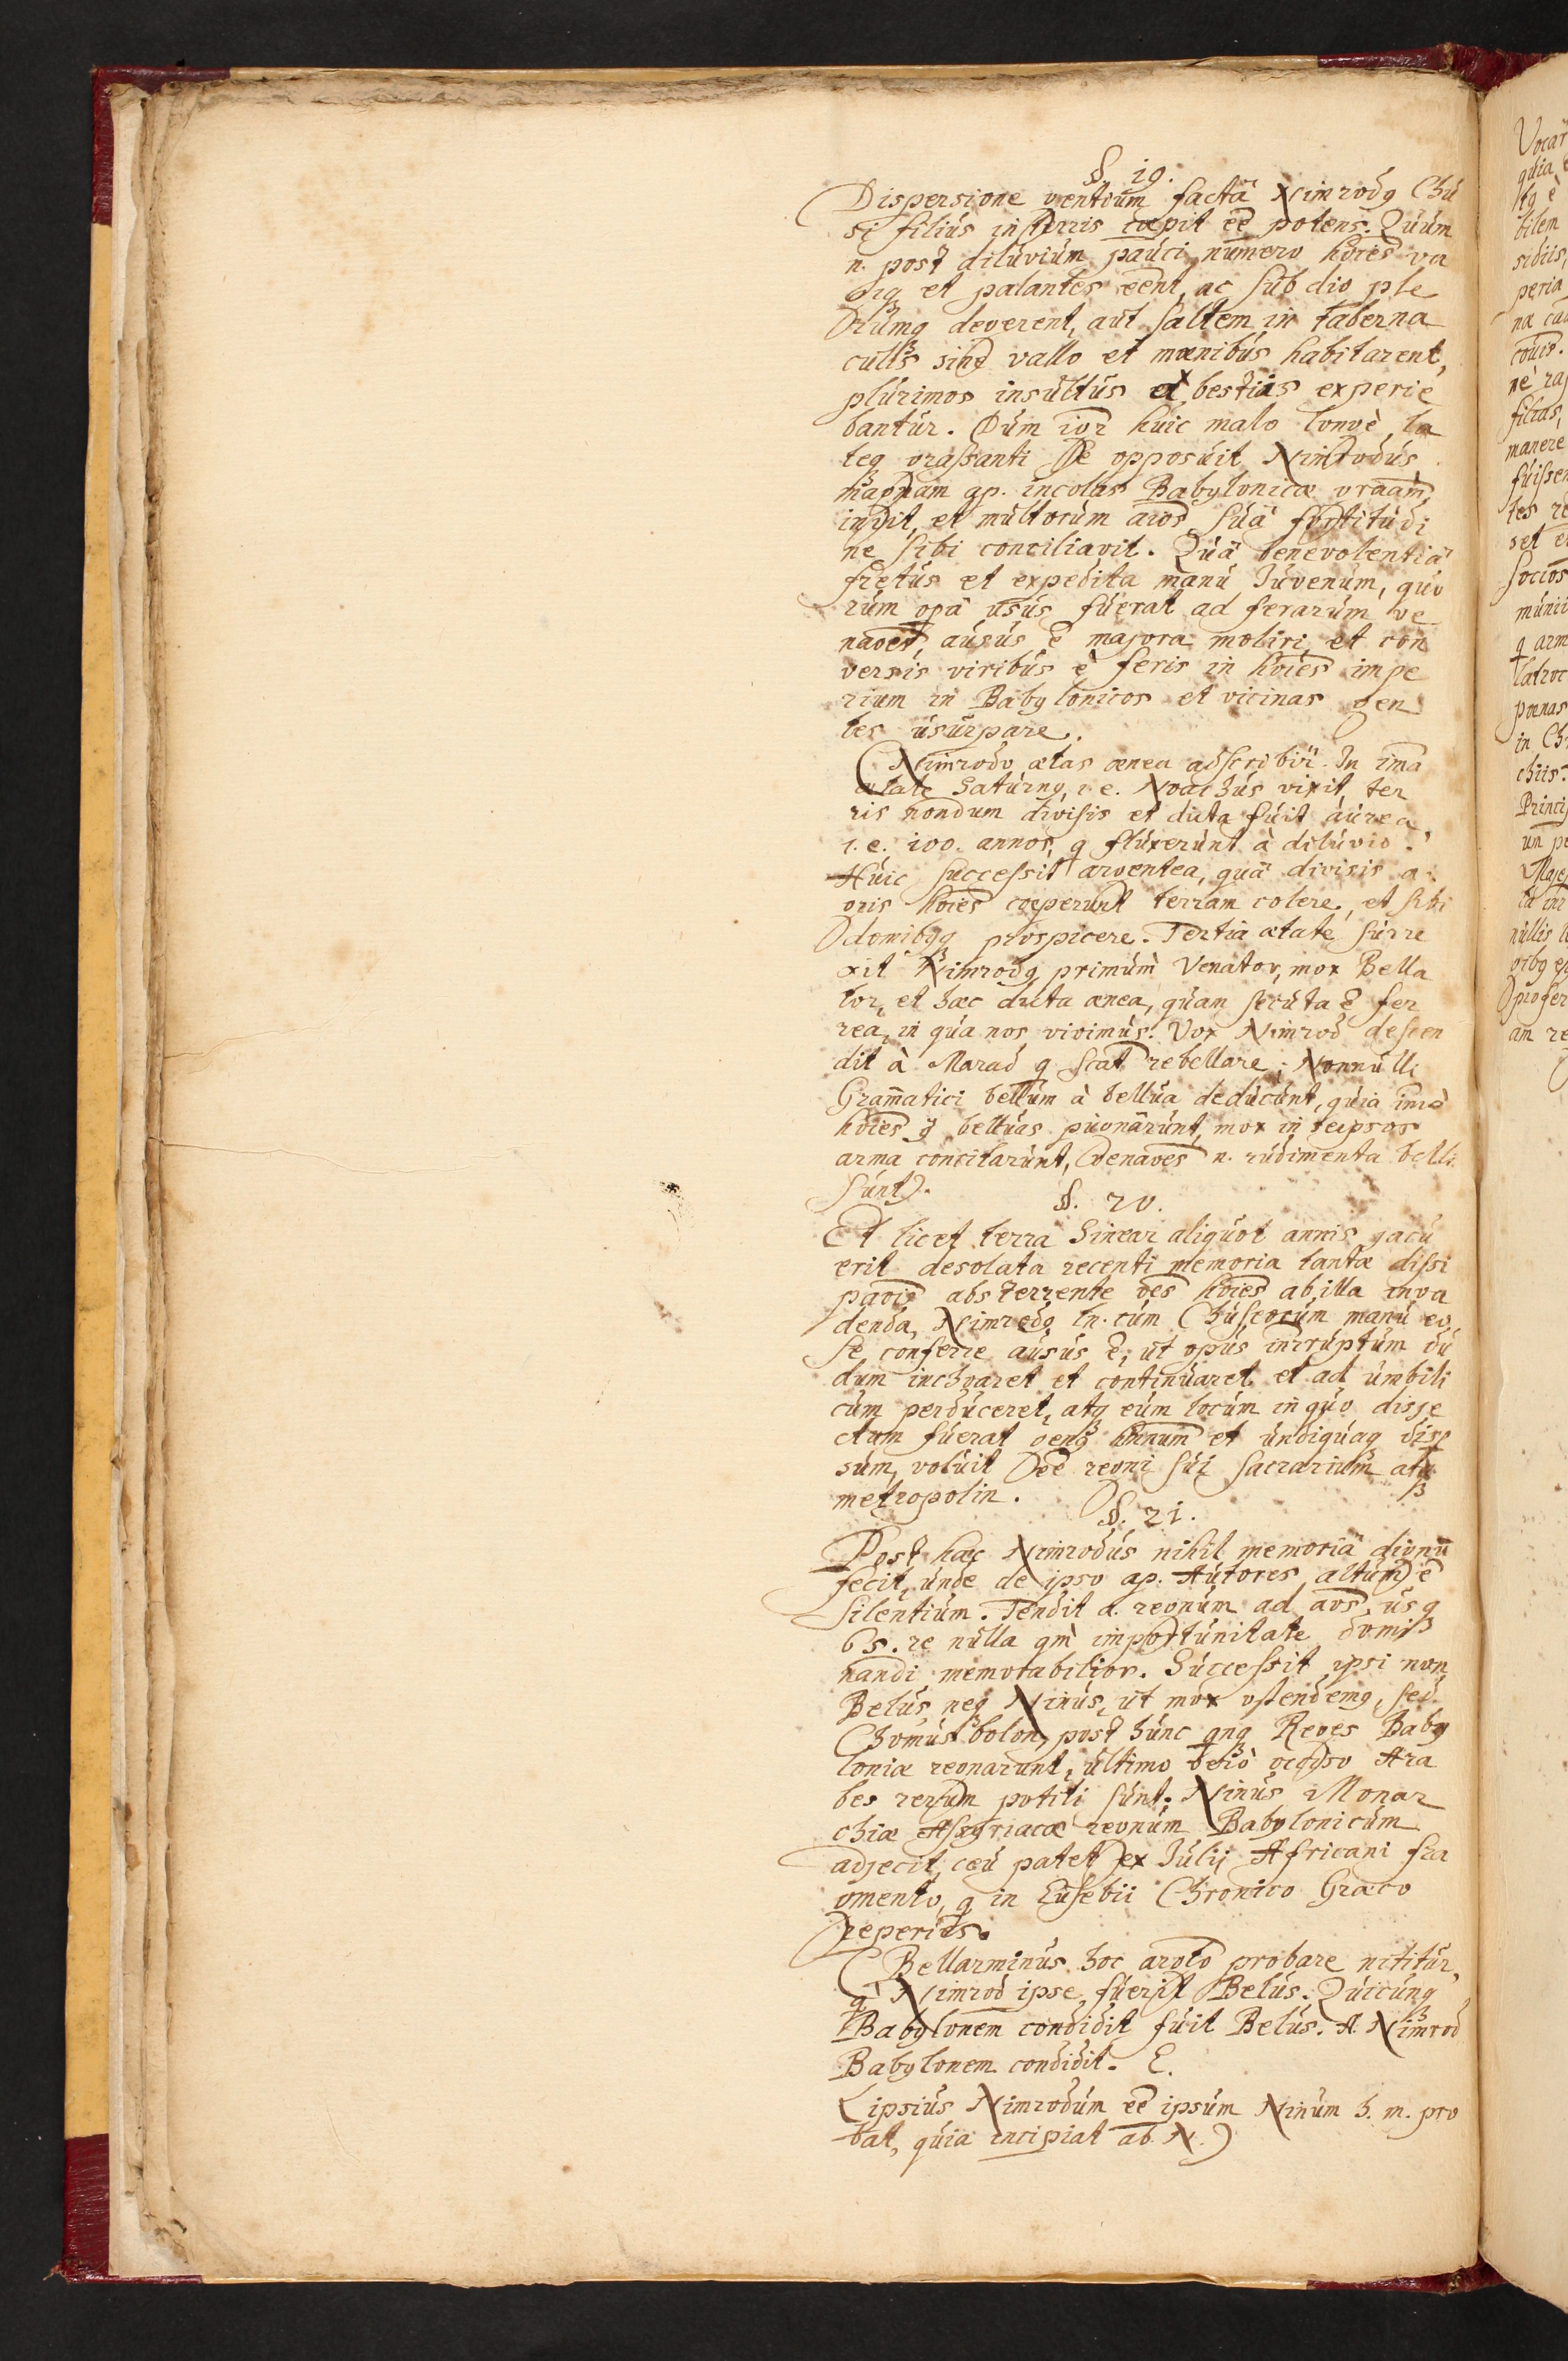 §. 19.
Dispersione gentium factâ Nimrodq Chu
si filius in terris cœpit eē potens. Quum
n. post diluvium pauci numero hoīes va
gi et palantes eēnt, ac sub dio ple
rumq degerent, aut saltem in taberna
culis sine vallo et mœnibus habitarent,
plurimos insultus à bestiis experie
bantur. Dum igr huic malo longè, la
teq grassanti se opposuit Nimrodus
magnam ap. incolas Babylonicæ graām
iniit, et multorum aīos suâ fortitudi
ne sibi conciliavit. Quâ benevolentiâ
fretus et expedita manu Juvenum, quo
rum opâ usus fuerat ad ferarum ve
naoēs, ausus ē majora moliri, et con
versis viribus è feris in hoīes impe
rium in Babylonicos et vicinas gen
tes usurpare.
(Nimrodo ætas ænea adscribit. In ima
ætate Saturnq, i. e. Noachus vixit, ter
ris nondum divisis et dicta fuit aurea
i. e. 100. annos, q fluxerunt à diluvio.
Huic successit argentea, quâ divisis a
gris hoīes cœperunt terram colere, et sibi
domibq prospicere. Tertia ætate surre
xit Nimrodq primùm Venator, mox Bella
tor, et hæc dicta ænea, quam secuta ē fer
rea, in qua nos vivimus. Vox Nimrod descen
dit à Marad q scat rebellare; Nonnulli
Gram̄atici bellum à bellua deducunt, quia imò
hoīes q belluas pugnârunt, mox in seipsos
arma concitarunt, Venaoēs n. rudimenta belli
sunt).
§. 20.
Et licet terra Sinear aliquot annis jacu
erit desolata recenti memoria tantæ dissi
paōis absterrente oēs hoīes ab illa inva
denda, Nimrodq tn. cum Chuseorum manu eo
se conferre ausus ē, ut opus inrruptum du
dum inchoaret et continuaret et ad umbili
cum perduceret, atq eum locum in quo disje
ctum fuerat genq hnum et undiquaq disp
sum, voluit eē regni sui sacrarium atq
metropolin.
§. 21.
Post hæc Nimrodus nihil memoriâ dignū
fecit, unde de ipso ap. Autores altum ē
silentium. Tendit a. regnum ad aos, usq
65. re nulla qm̀ importunitate domi
nandi memorabilior. Successit ipsi non
Belus neq Ninus, ut mox ostendemq, sed
Chomusbolon, post hunc qnq Reges Baby
loniæ regnarunt, ultimo verò occiso Ara
bes rerum potiti sunt. Ninus Monar
chiæ Assyriacæ regnum Babylonicum
adjecit, ceu patet ex Julij Africani fra
gmento, q in Eusebii Chronico Græco
reperitr.
(Bellarminus hoc argto probare nititur,
q Nimrod ipse fuerit Belus. Quicunq
Babylonem condidit fuit Belus. A. Nimrod
Babylonem condidit. E.
Lipsius Nimrodum eē ipsum Ninum h. m. pro
bat, quia incipiat ab N.)